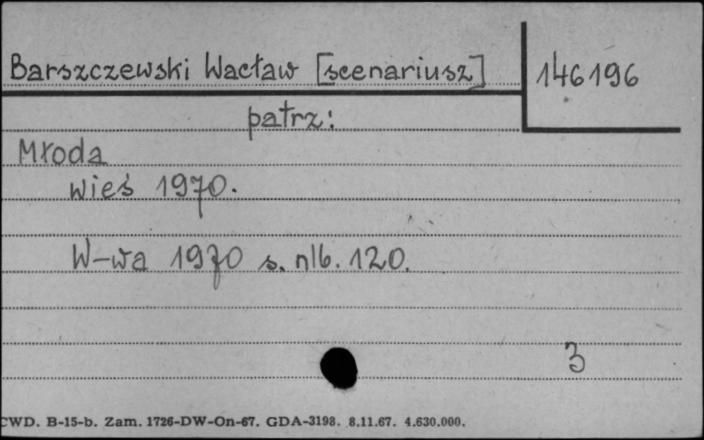 Barszczewski Wacław [scenariusz]
146196
patrz:
Młoda
wieś 1970.
W-wa 1970 s. nlb. 120.
3
CWD. B-15-b. Zam. 1726-DW-On-67. GDA-3198. 8.11.67. 4.630.000.